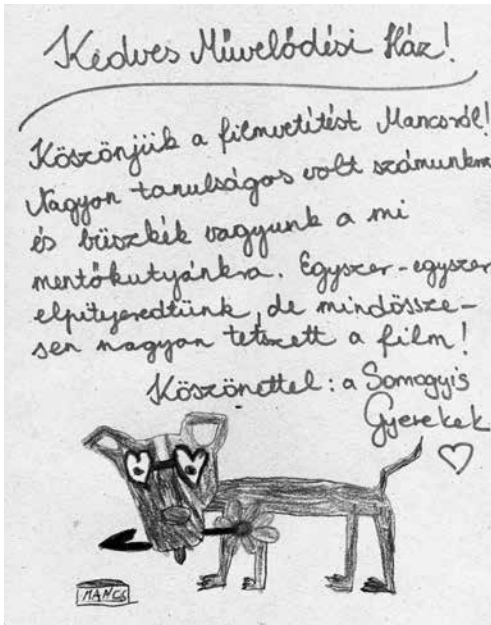 Kedves Művelődési Ház!
Köszönjük a filmvetítést Mancsról!
Nagyon tanulságos volt számunkra
és büszkék vagyunk a mi
mentőkutyánkra. Egyszer-egyszer
elpityeredtünk, de mindössze-
sen nagyon tetszett a film!
Köszönettel: a Somogyis
Gyerekek
MANCS